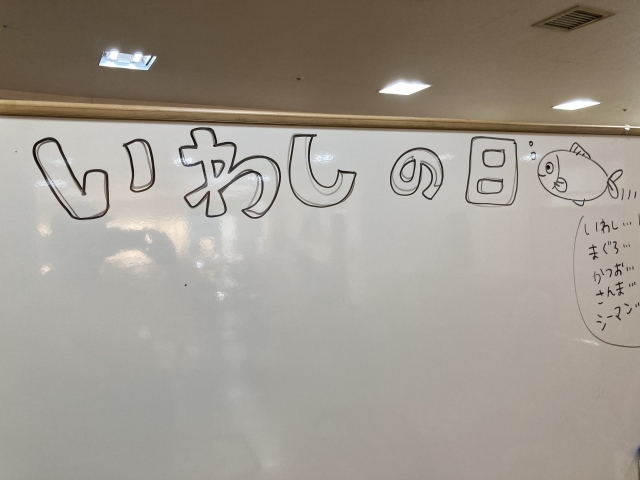 いわしの日
いわし…
まぐろ…
かつお…
さんま…
シーマン…